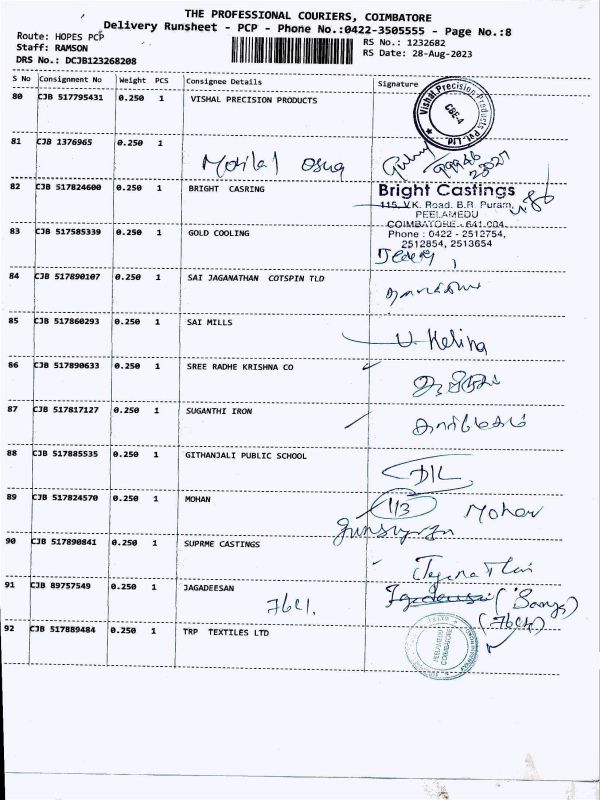 THE PROFESSIONAL COURIERS, COIMBATORE
Delivery Runsheet - PCP - Phone No.:0422-3505555 - Page No.:8
Route: HOPES PCP
Staff: RAMSON
DRS No.: DCJB123268208
RS No.: 1232682
RS Date: 28-Aug-2023
S No Consignment No Weight PCS Consignee Details Signature
80 CJB 517795431 0.250 1 VISHAL PRECISION PRODUCTS
Vishal Precision Products Pvt. Ltd
CBE-4
81 CJB 1376965 0.250 1
Motilal Oswa
99946
82 CJB 517824600 0.250 1 BRIGHT CASRING
Bright Castings
115, V.K. Road, B.R. Puram,
PEELAMEDU
COIMBATORE - 641 004.
Phone : 0422 - 2512754,
2512854, 2513654
83 CJB 517585339 0.250 1 GOLD COOLING
84 CJB 517890107 0.250 1 SAI JAGANATHAN COTSPIN TLD
85 CJB 517860293 0.250 1 SAI MILLS
86 CJB 517890633 0.250 1 SREE RADHE KRISHNA CO
87 CJB 517817127 0.250 1 SUGANTHI IRON
88 CJB 517885535 0.250 1 GITHANJALI PUBLIC SCHOOL
89 CJB 517824570 0.250 1 MOHAN
113 Mohan
90 CJB 517890841 0.250 1 SUPRME CASTINGS
91 CJB 89757549 0.250 1 JAGADEESAN
92 CJB 517889484 0.250 1 TRP TEXTILES LTD
PEELAMEDU
COIMBATORE